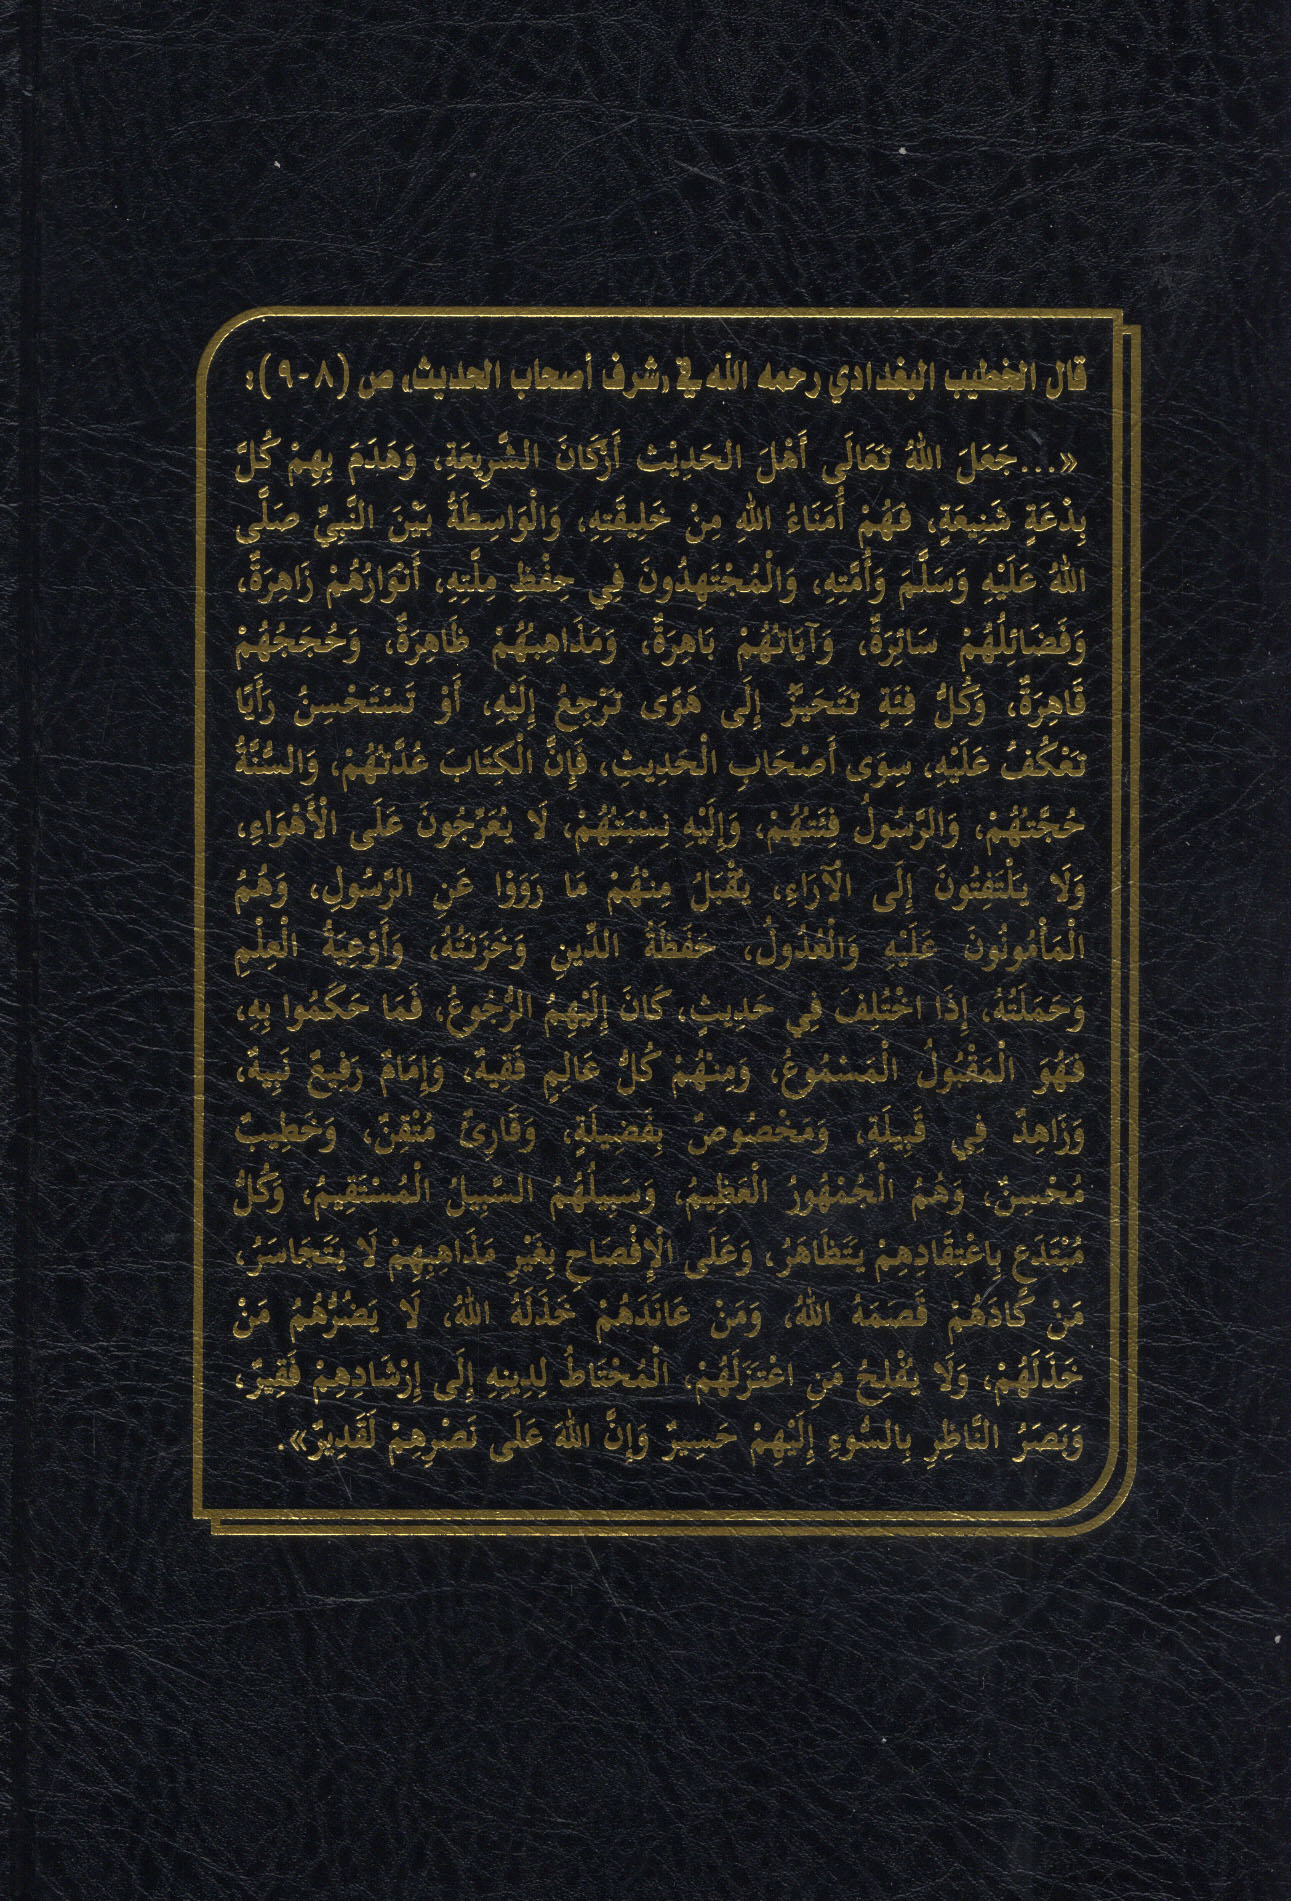 قال الخطيب البغدادي رحمه الله في «شرف أصحاب الحديث» ص (٨-٩):
«...جَعَلَ اللهُ تَعَالَى أَهْلَ الحَدِيْث أَرْكَانَ الشَّرِيعَةِ، وَهَدَمَ بِهِمْ كُلَّ
بِدْعَةٍ شَنِيعَةٍ، فَهُمْ أُمَنَاءُ اللهِ مِنْ خَلِيقَتِهِ، وَالْوَاسِطَةُ بَيْنَ النَّبِيِّ صَلَّى
اللهُ عَلَيْهِ وَسَلَّمَ وَأُمَّتِهِ، وَالْمُجْتَهِدُونَ فِي حِفْظِ مِلَّتِهِ، أَنْوَارُهُمْ زَاهِرَةٌ،
وَفَضَائِلُهُمْ سَائِرَةٌ، وَآيَاتُهُمْ بَاهِرَةٌ، وَمَذَاهِبُهُمْ ظَاهِرَةٌ، وَحُجَجُهُمْ
قَاهِرَةٌ، وَكُلُّ فِئَةٍ تَتَحَيَّزُ إِلَى هَوًى تَرْجِعُ إِلَيْهِ، أَوْ تَسْتَحْسِنُ رَأْيًا
تَعْكُفُ عَلَيْهِ، سِوَى أَصْحَابِ الْحَدِيثِ، فَإِنَّ الْكِتَابَ عُدَّتُهُمْ، وَالسُّنَّةُ
حُجَّتُهُمْ، وَالرَّسُولُ فِئَتُهُمْ، وَإِلَيْهِ نِسْبَتُهُمْ، لَا يُعَرِّجُونَ عَلَى الْأَهْوَاءِ،
وَلَا يَلْتَفِتُونَ إِلَى الْآرَاءِ، يُقْبَلُ مِنْهُمْ مَا رَوَوْا عَنِ الرَّسُولِ، وَهُمُ
الْمَأْمُونُونَ عَلَيْهِ وَالْعُدُولُ، حَفَظَةُ الدِّينِ وَخَزَنَتُهُ، وَأَوْعِيَةُ الْعِلْمِ
وَحَمَلَتُهُ، إِذَا اخْتُلِفَ فِي حَدِيثٍ، كَانَ إِلَيْهِمُ الرُّجُوعُ، فَمَا حَكَمُوا بِهِ،
فَهُوَ الْمَقْبُولُ الْمَسْمُوعُ، وَمِنْهُمْ كُلُّ عَالِمٍ فَقِيهٌ، وَإِمَامٌ رَفِيعٌ نَبِيهٌ،
وَزَاهِدٌ فِي قَبِيلَةٍ، وَمَخْصُوصٌ بِفَضِيلَةٍ، وَقَارِئٌ مُتْقِنٌ، وَخَطِيبٌ
مُحْسِنٌ، وَهُمُ الْجُمْهُورُ الْعَظِيمُ، وَسَبِيلُهُمُ السَّبِيلُ الْمُسْتَقِيمُ، وَكُلُّ
مُبْتَدَعٍ بِاعْتِقَادِهِمْ يَتَظَاهَرُ، وَعَلَى الْإِفْصَاحِ بِغَيْرِ مَذَاهِبِهِمْ لَا يَتَجَاسَرُ،
مَنْ كَادَهُمْ قَصَمَهُ اللهُ، وَمَنْ عَانَدَهُمْ خَذَلَهُ اللهُ، لَا يَضُرُّهُمْ مَنْ
خَذَلَهُمْ، وَلَا يُفْلِحُ مَنِ اعْتَزَلَهُمْ، الْمُحْتَاطُ لِدِينِهِ إِلَى إِرْشَادِهِمْ فَقِيرٌ،
وَبَصَرُ النَّاظِرِ بِالسُّوءِ إِلَيْهِمْ حَسِيرٌ وَإِنَّ اللهَ عَلَى نَصْرِهِمْ لَقَدِيرٌ».